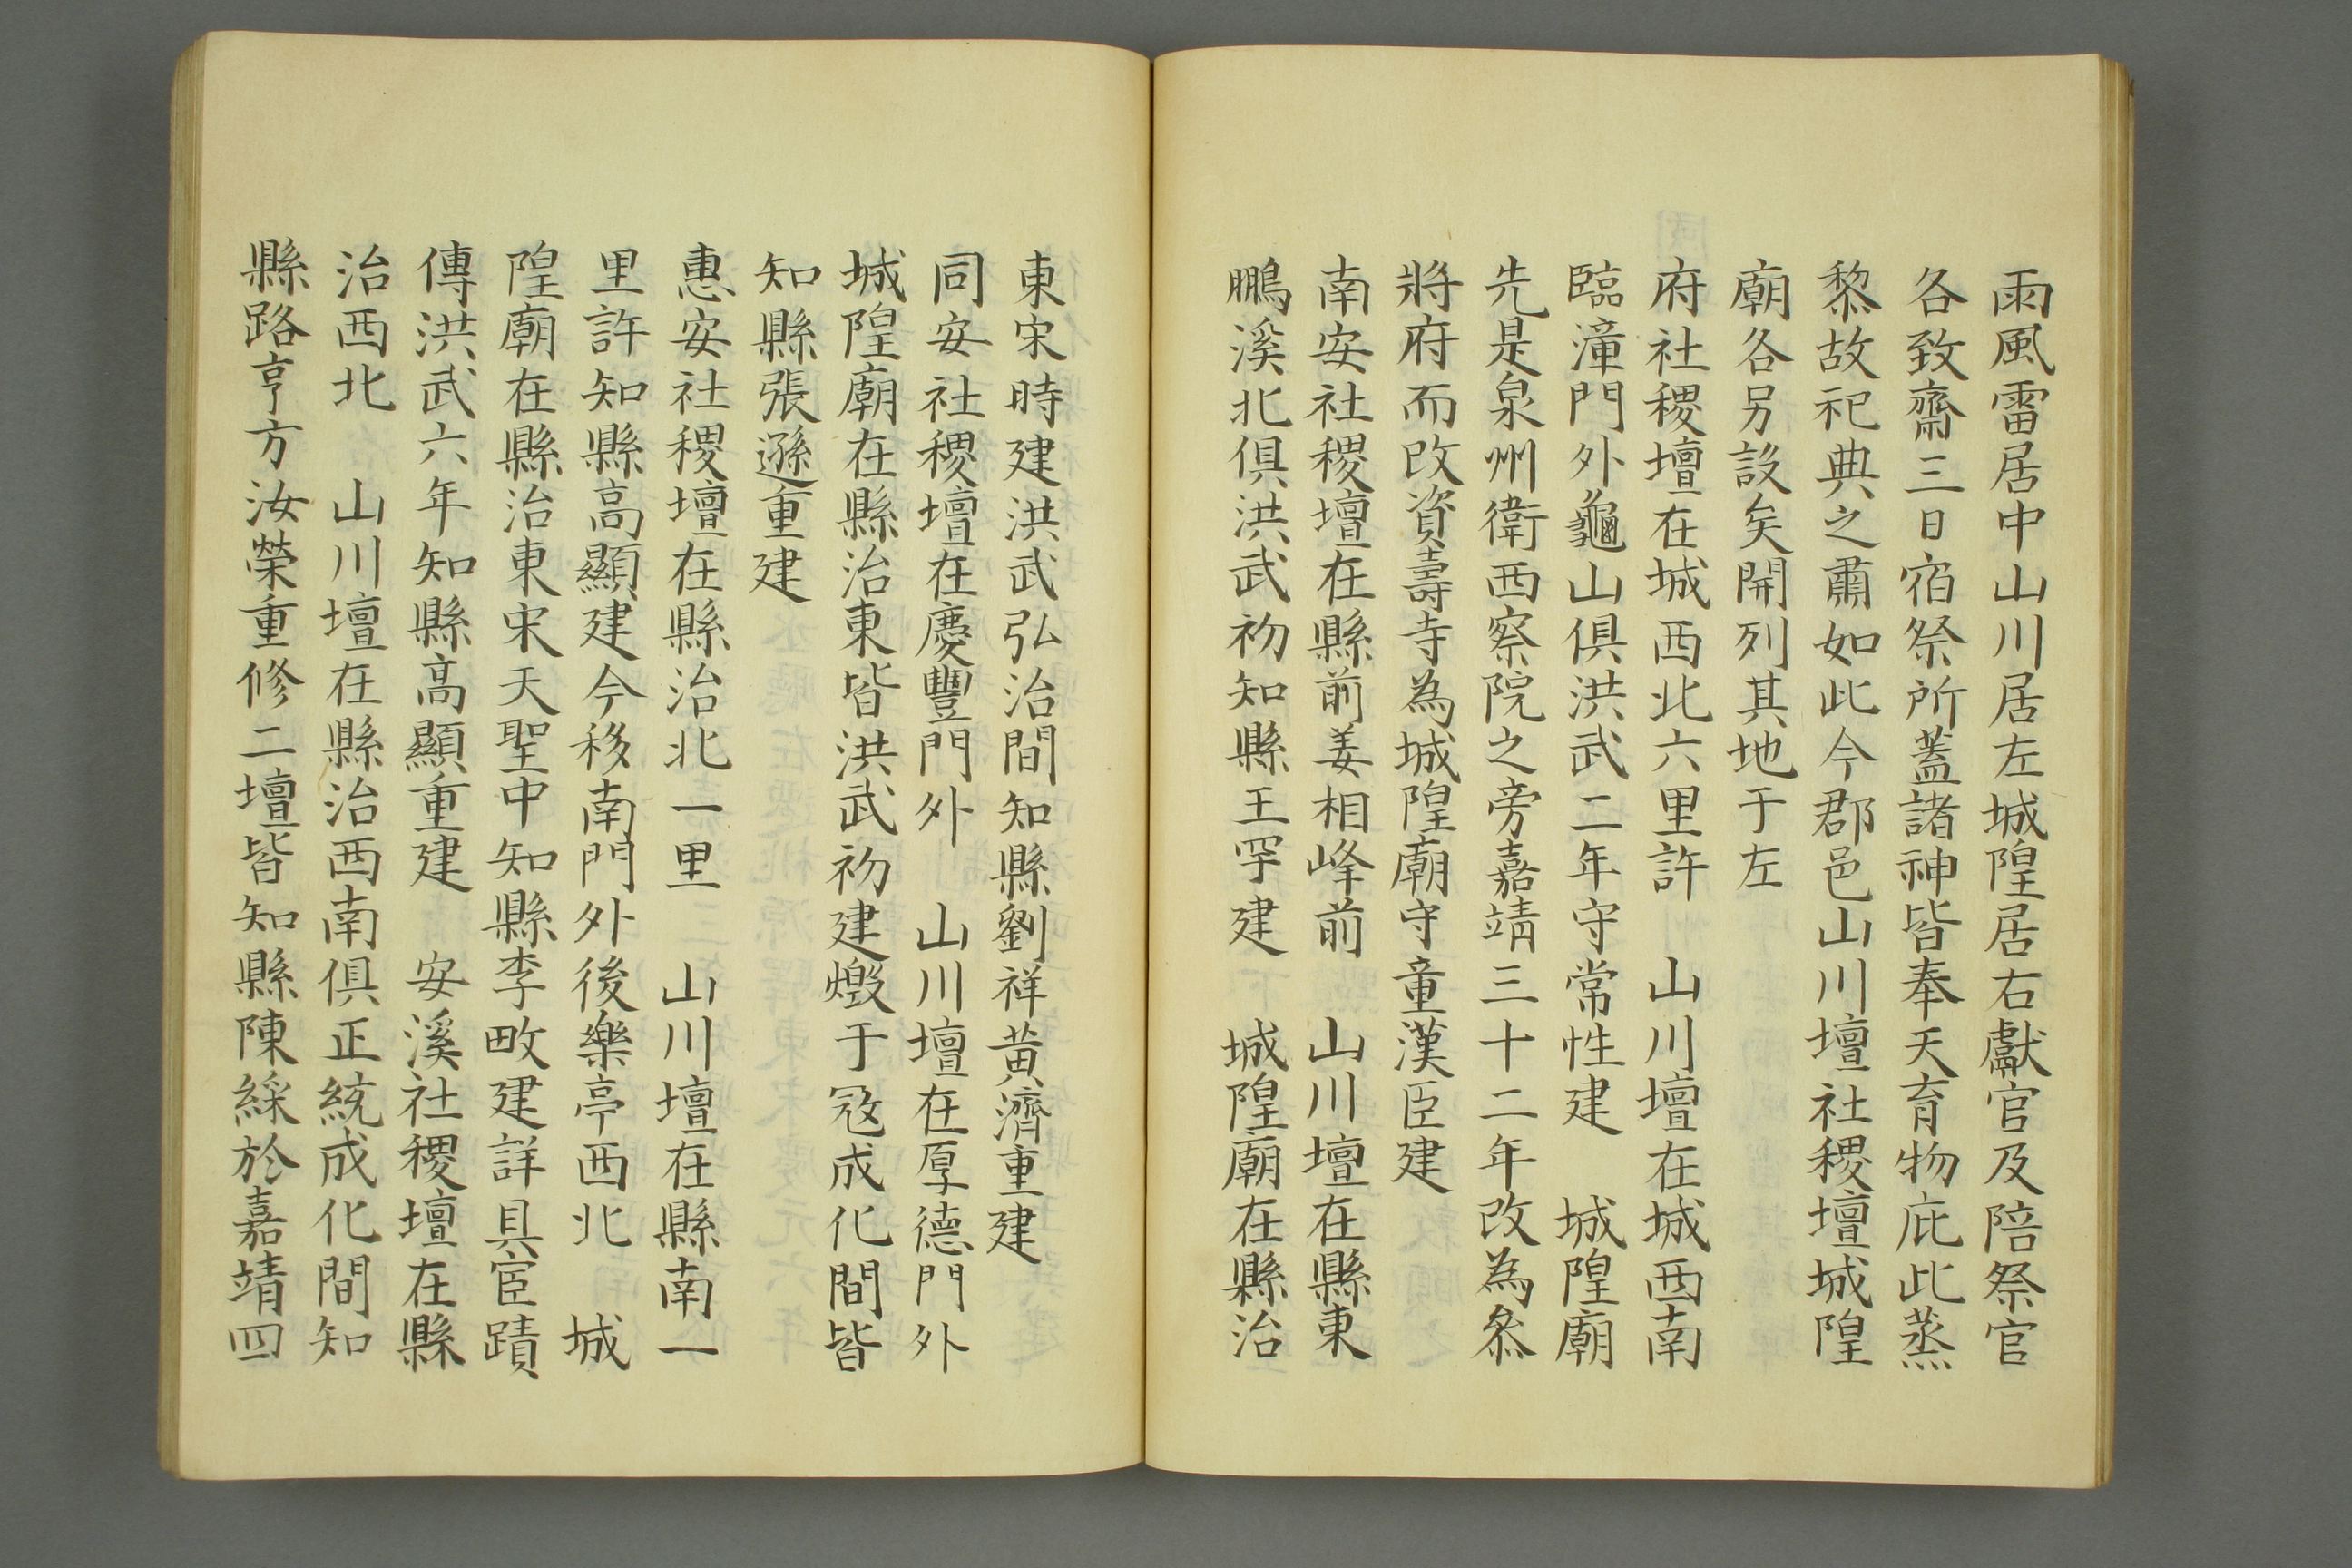 雨風雷居中山川居左城隍居右獻官及陪祭官
各致齋三日宿祭所蓋諸神皆奉天育物庇此蒸
黎故祀典之肅如此今郡邑山川壇社稷壇城隍
廟各另設矣開列其地于左
府社稷壇在城西北六里許　山川壇在城西南
臨漳門外龜山俱洪武二年守常性建　城隍廟
先是泉州衛西察院之旁嘉靖三十二年改為叅
將府而改資壽寺為城隍廟守童漢臣建
南安社稷壇在縣前姜相峰前　山川壇在縣東
鵬溪北俱洪武初知縣王罕建　城隍廟在縣治
東宋時建洪武弘治間知縣劉祥黃濟重建
同安社稷壇在慶豐門外　山川壇在厚德門外
城隍廟在縣治東皆洪武初建燬于冦成化間皆
知縣張遜重建
惠安社稷壇在縣治北一里　山川壇在縣南一
里許知縣高顯建今移南門外後樂亭西北　城
隍廟在縣治東宋天聖中知縣李畋建詳具宦蹟
傳洪武六年知縣高顯重建　安溪社稷壇在縣
治西北　山川壇在縣治西南俱正統成化間知
縣路亨方汝榮重修二壇皆知縣陳綵於嘉靖四